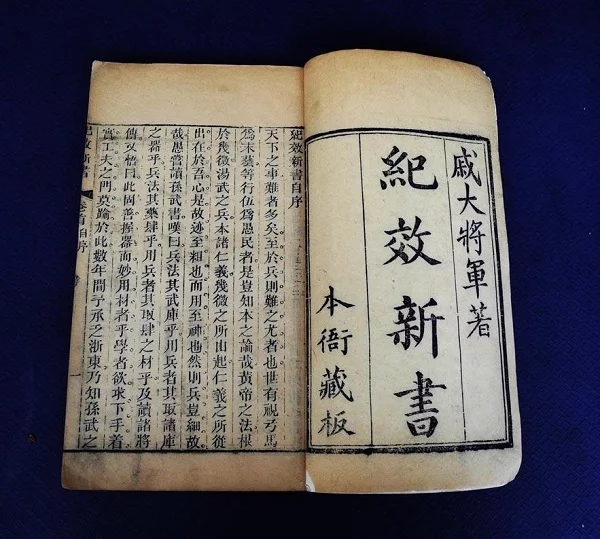 戚大將軍著
紀效新書
本衙藏板
紀效新書自序
天下之事難者多矣至於兵則難之尤者也世有視弓馬
為末藝等行伍為愚民者是豈知本之論哉黃帝之法根
於幾微湯武之兵本諸仁義幾微之所由起仁義之所從
出在於吾心是故迹至粗也而用至神也然則兵豈細故
哉愚嘗讀孫武書嘆曰兵法其武庫乎用兵者其取諸庫
之器乎兵法其藥肆乎用兵者其取肆之材乎及讀諸將
傳又悟曰此固善握器而妙用材者乎學者欲求下手着
實工夫之門莫踰於此數年間予承乏浙東乃知孫武之
紀效新書 卷首自序 一